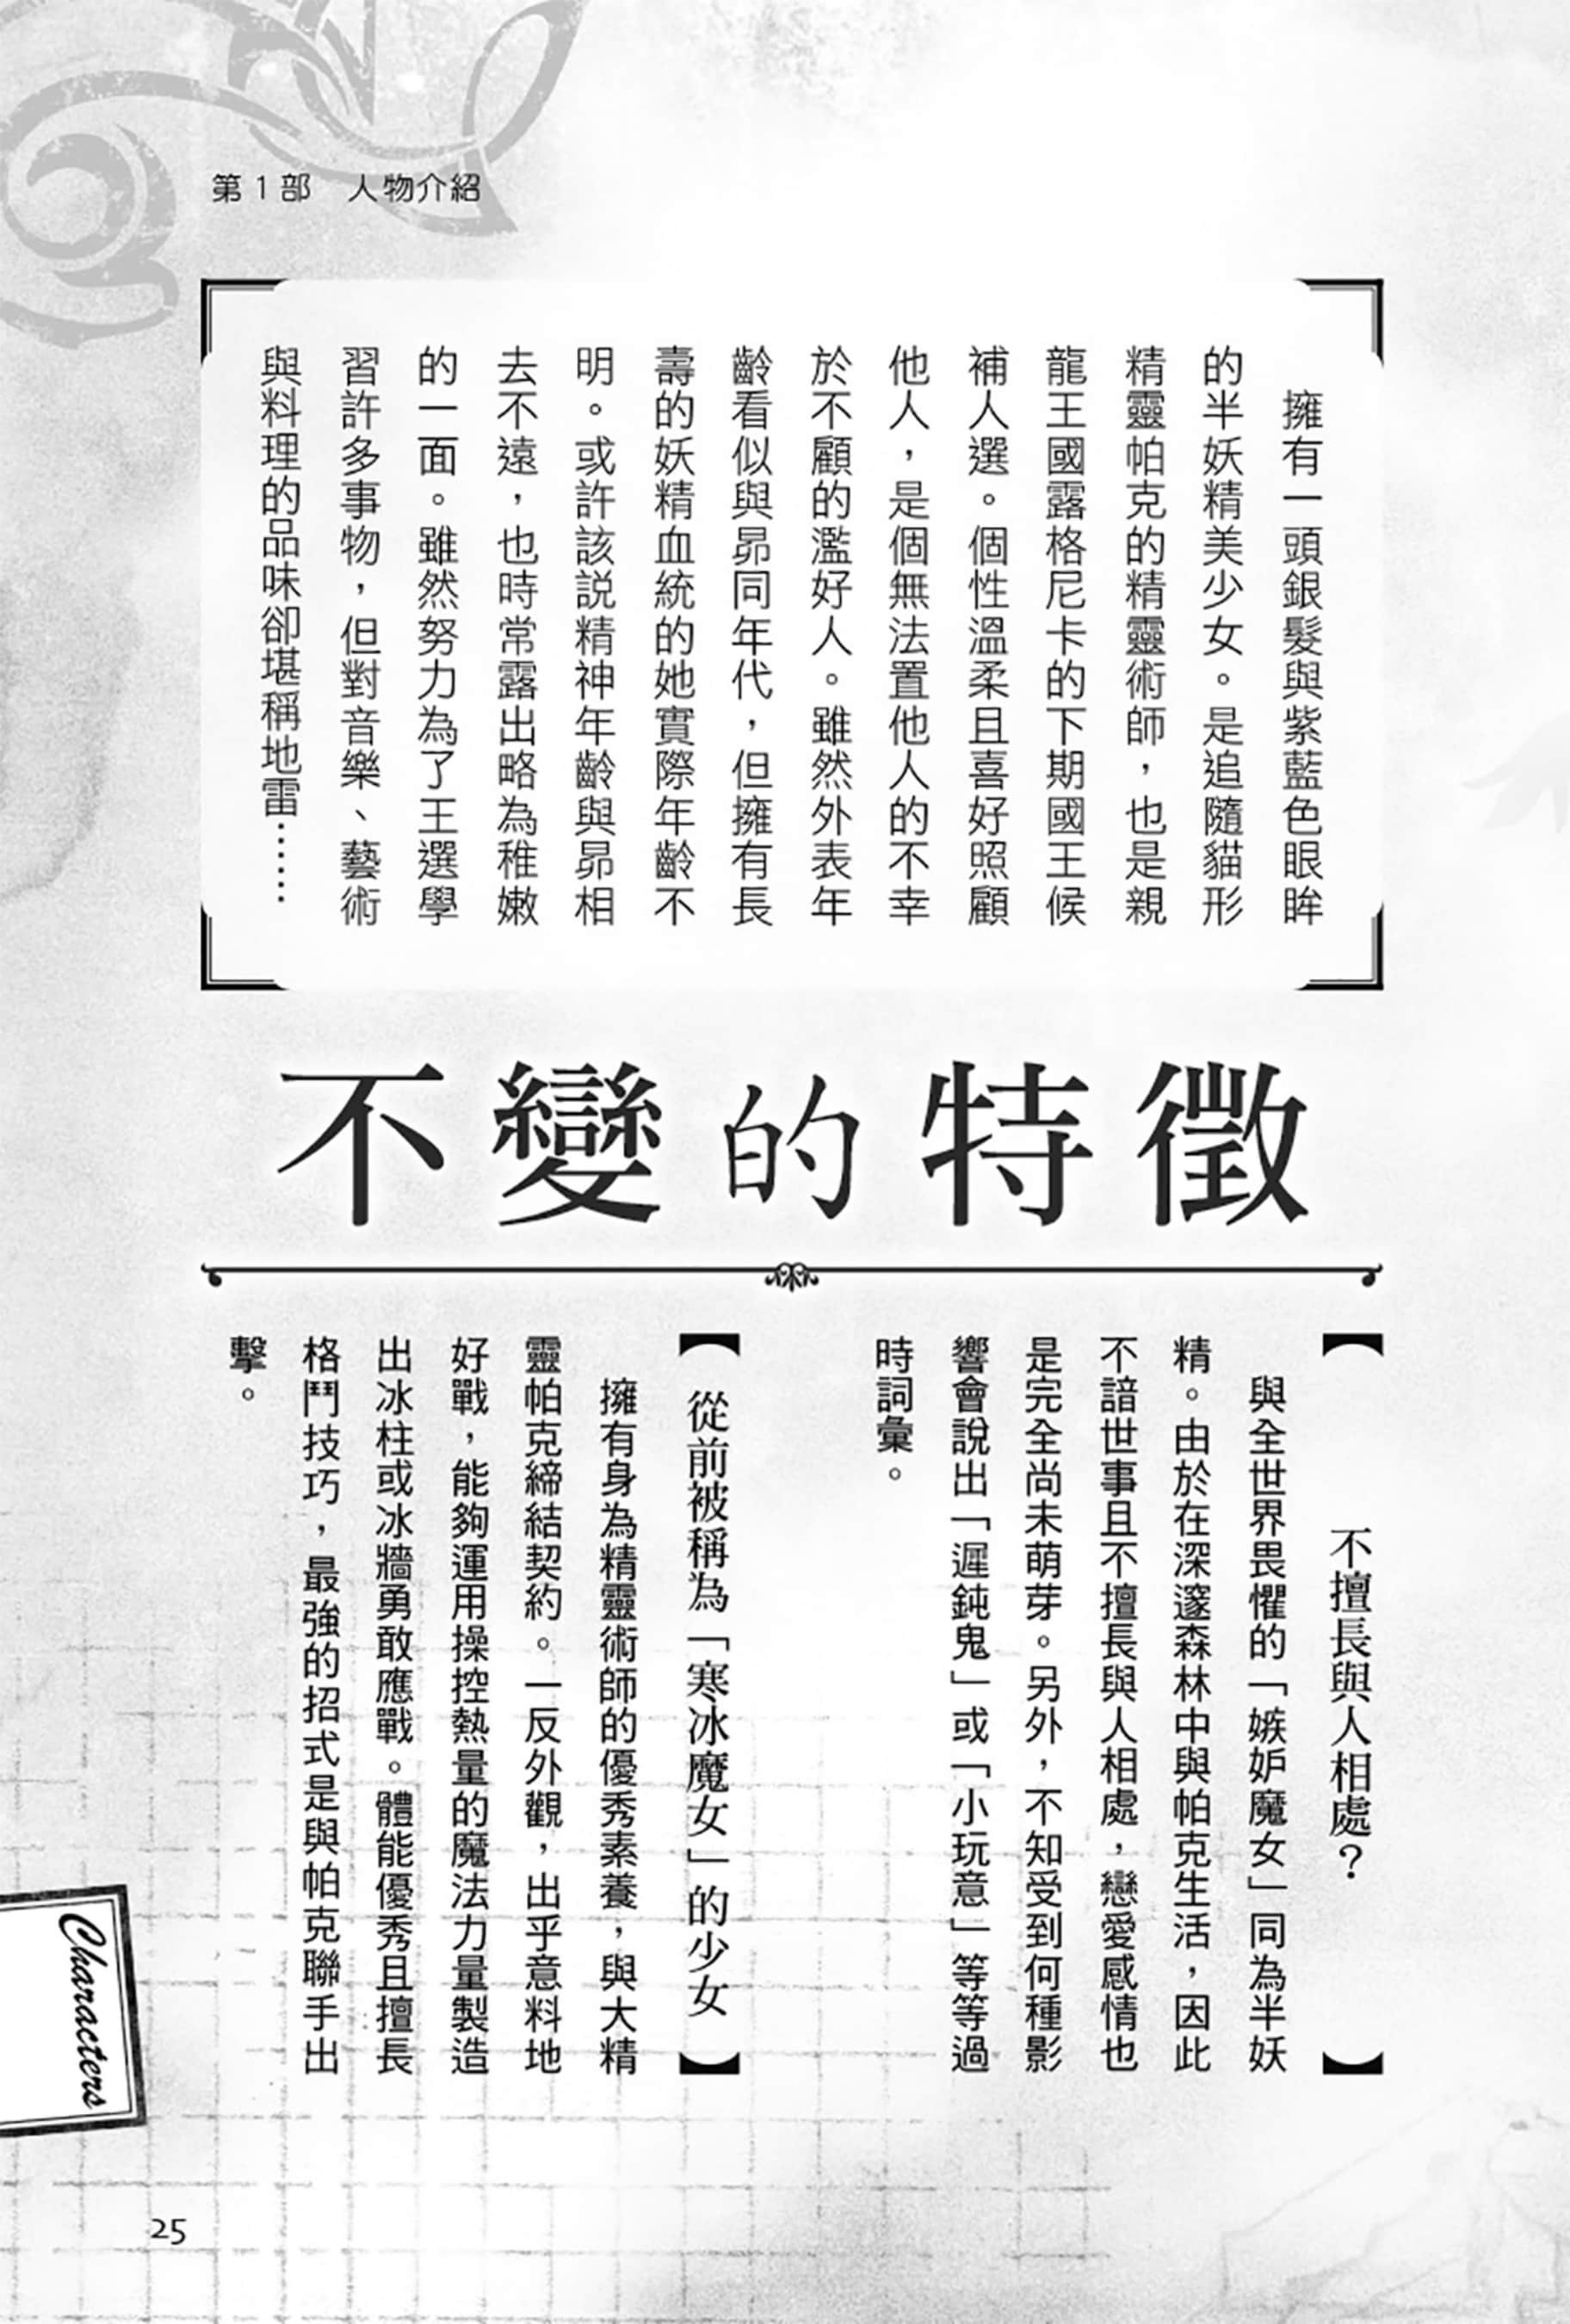 第1部　人物介紹
擁有一頭銀髮與紫藍色眼眸
的半妖精美少女。是追隨貓形
精靈帕克的精靈術師，也是親
龍王國露格尼卡的下期國王候
補人選。個性溫柔且喜好照顧
他人，是個無法置他人的不幸
於不顧的濫好人。雖然外表年
齡看似與昴同年代，但擁有長
壽的妖精血統的她實際年齡不
明。或許該說精神年齡與昴相
去不遠，也時常露出略為稚嫩
的一面。雖然努力為了王選學
習許多事物，但對音樂、藝術
與料理的品味卻堪稱地雷……
不變的特徵
【不擅長與人相處？】
與全世界畏懼的「嫉妒魔女」同為半妖
精。由於在深邃森林中與帕克生活，因此
不諳世事且不擅長與人相處，戀愛感情也
是完全尚未萌芽。另外，不知受到何種影
響會說出「遲鈍鬼」或「小玩意」等等過
時詞彙。
【從前被稱為「寒冰魔女」的少女】
擁有身為精靈術師的優秀素養，與大精
靈帕克締結契約。一反外觀，出乎意料地
好戰，能夠運用操控熱量的魔法力量製造
出冰柱或冰牆勇敢應戰。體能優秀且擅長
格鬥技巧，最強的招式是與帕克聯手出
擊。
Characters
25